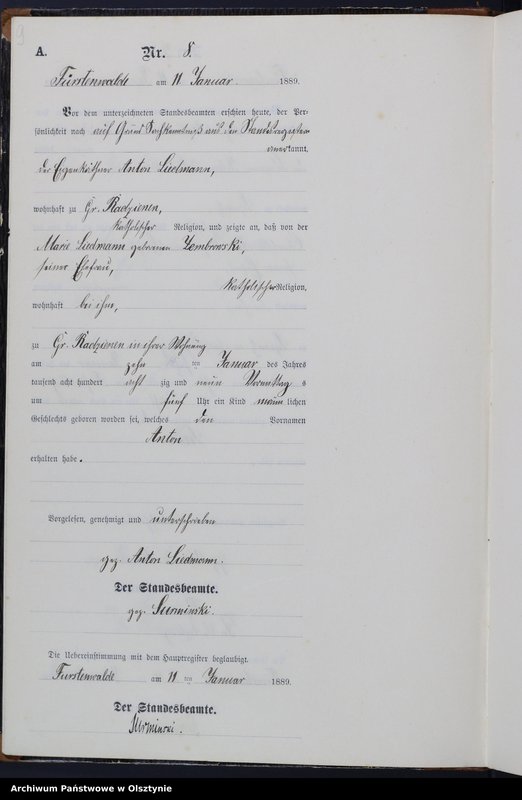 9
A.
Nr. 8.
Fürstenwalde am 11 Januar 1889.
Vor dem unterzeichneten Standesbeamten erschien heute, der Per-
sönlichkeit nach auf Grund Sachkenntniß aus den Standesregistern
anerkannt,
der Eigenkäthner Anton Liedmann,
wohnhaft zu Gr. Radzienen,
katholischer Religion, und zeigte an, daß von der
Marie Liedmann geborenen Zembrowski,
seiner Ehefrau,
katholischer Religion,
wohnhaft bei ihm,
zu Gr. Radzienen in ihrer Wohnung
am zehn ten Januar des Jahres
tausend acht hundert acht zig und neun Vormittag s
um fünf Uhr ein Kind männ lichen
Geschlechts geboren worden sei, welches den Vornamen
Anton
erhalten habe.
Vorgelesen, genehmigt und unterschrieben
gez. Anton Liedmann.
Der Standesbeamte.
gez. Surminski.
Die Uebereinstimmung mit dem Hauptregister beglaubigt.
Fürstenwalde am 11 ten Januar 1889.
Der Standesbeamte.
Surminski.
Archiwum Państwowe w Olsztynie